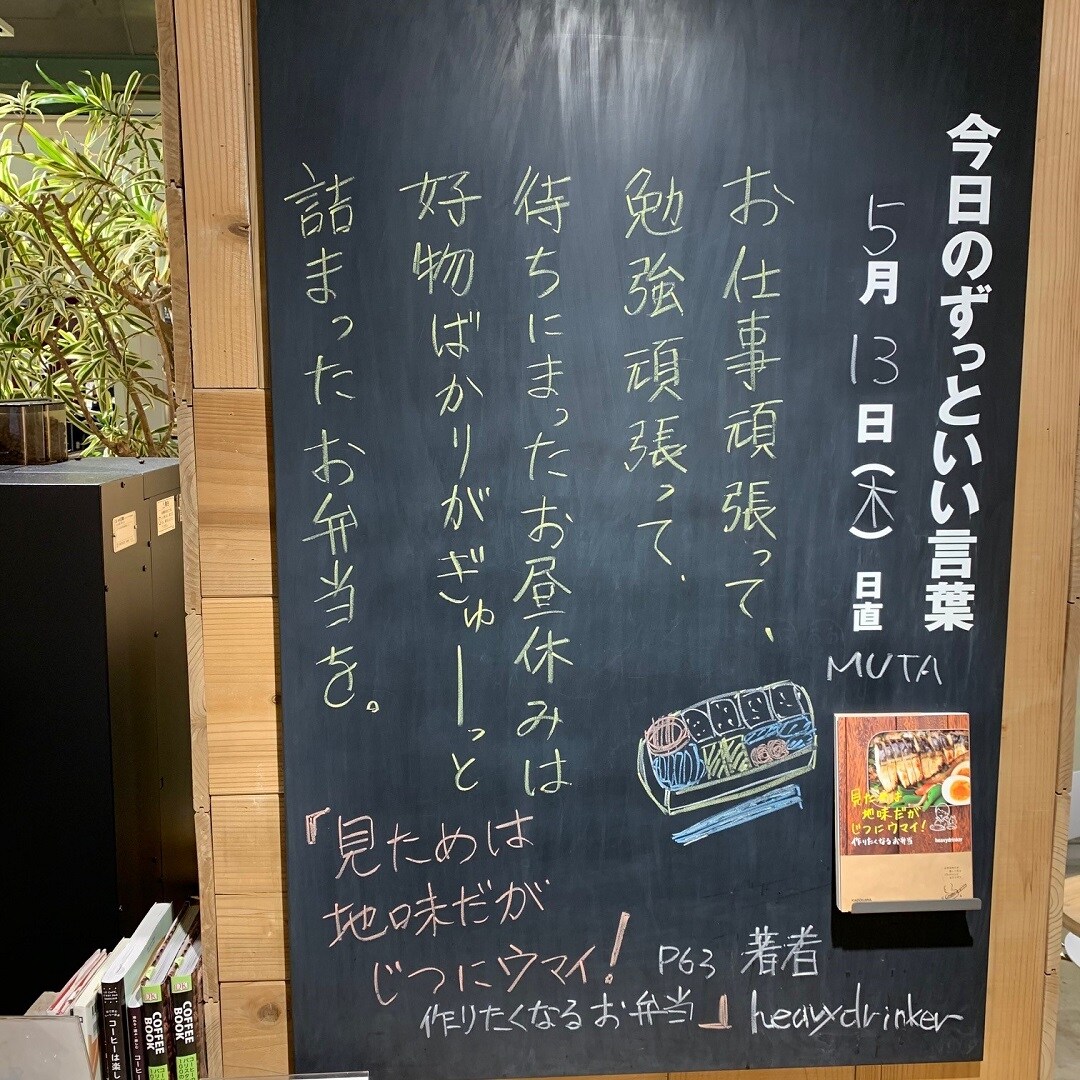 今日のずっといい言葉
5月13日(木) 日直
MUTA
お仕事頑張って、
勉強頑張って、
待ちにまったお昼休みは
好物ばかりがぎゅーっと
詰まったお弁当を。
『見ためは
地味だが
じつにウマイ!
作りたくなるお弁当』
P63 著者
heavydrinker
見ためは
地味だが
じつにウマイ!
作りたくなるお弁当
heavydrinker
COFFEE BOOK
COFFEE BOOK
コーヒーは楽し